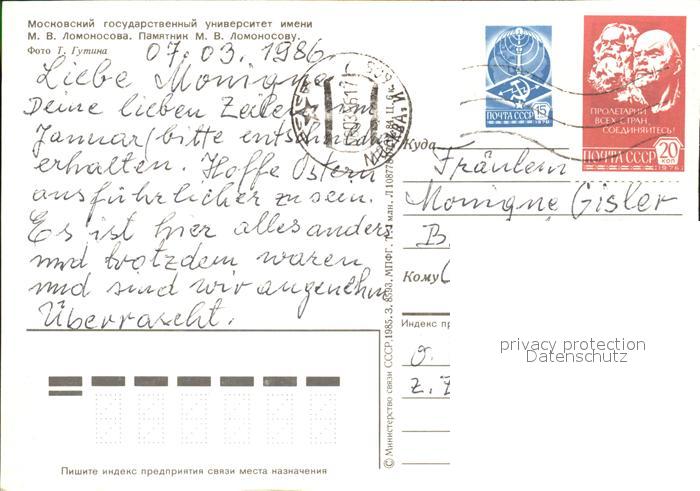 Московский государственный университет имени
М. В. Ломоносова. Памятник М. В. Ломоносову.
Фото Т. Гутина
07.03.1986
Liebe Monique
Deine lieben Zeilen im
Januar (bitte entschuldige
erhalten. Hoffe Ostern
ausführlicher zu sein.
Es ist hier alles anders
und trotzdem waren
und sind wir angenehm
Überrascht.
ПОЧТА СССР 15 к
1976
ПРОЛЕТАРИИ
ВСЕХ СТРАН,
СОЕДИНЯЙТЕСЬ!
ПОЧТА СССР 20 коп
1976
МОСКВА
Куда
Fräulein
Monique Gisler
B
Кому
Индекс пр
z. Z
privacy protection
Datenschutz
© Министерство связи СССР, 1985. З. 8593. МПФГ.
Пишите индекс предприятия связи места назначения